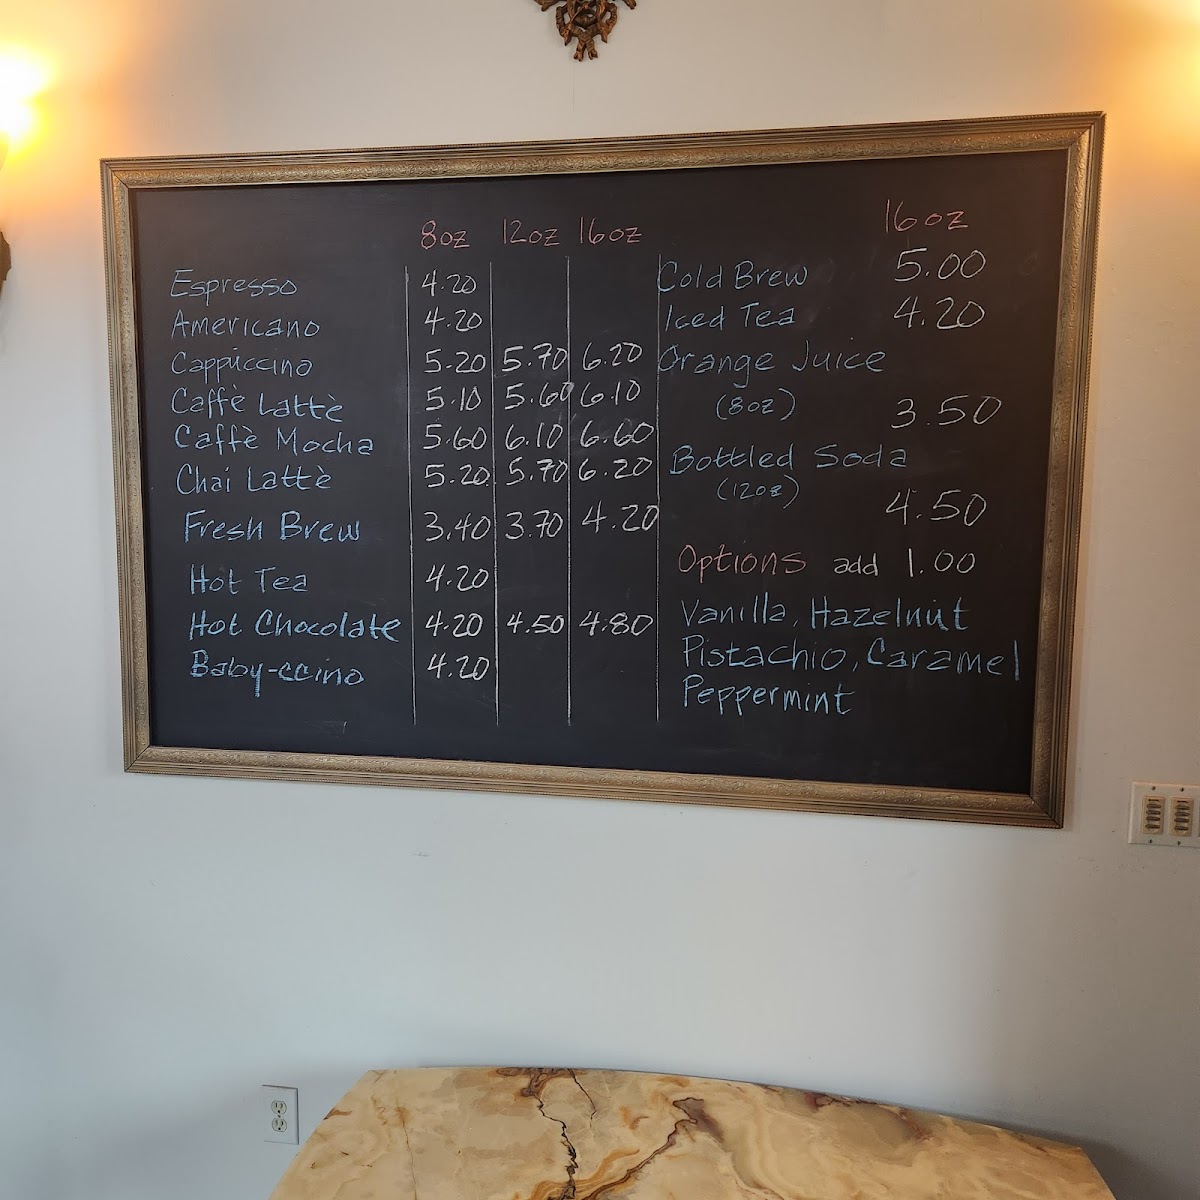 8oz 12oz 16oz
Espresso 4.20
Americano 4.20
Cappuccino 5.20 5.70 6.20
Caffè Lattè 5.10 5.60 6.10
Caffè Mocha 5.60 6.10 6.60
Chai Lattè 5.20 5.70 6.20
Fresh Brew 3.40 3.70 4.20
Hot Tea 4.20
Hot Chocolate 4.20 4.50 4.80
Baby-ccino 4.20
16oz
Cold Brew 5.00
Iced Tea 4.20
Orange Juice
(8oz) 3.50
Bottled Soda
(12oz)
4.50
Options add 1.00
Vanilla, Hazelnut
Pistachio, Caramel
Peppermint